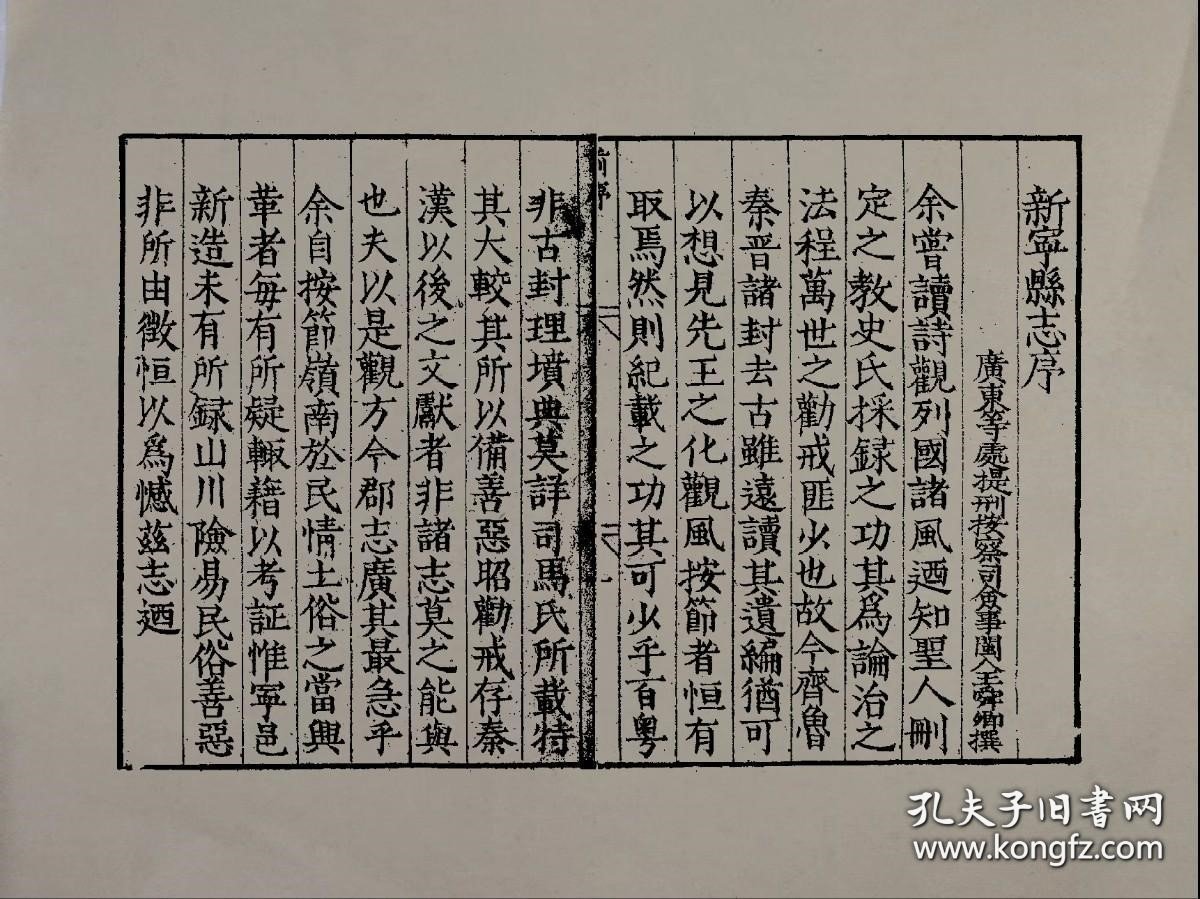 新寧縣志序
廣東等處提刑按察司僉事閩人王舜卿撰
余嘗讀詩觀列國諸風迺知聖人刪
定之教史氏採録之功其爲論治之
法程萬世之勸戒匪少也故今齊魯
秦晋諸封去古雖遠讀其遺編猶可
以想見先王之化觀風按節者恒有
取焉然則紀載之功其可少乎百粤
前序
非古封理墳典莫詳司馬氏所載特
其大較其所以備善惡昭勸戒存秦
漢以後之文獻者非諸志莫之能與
也夫以是觀方今郡志廣其最急乎
余自按節嶺南於民情土俗之當興
革者每有所疑輙籍以考証惟寧邑
新造未有所録山川險易民俗善惡
非所由徵恒以爲憾兹志迺
孔夫子旧书网
www.kongfz.com